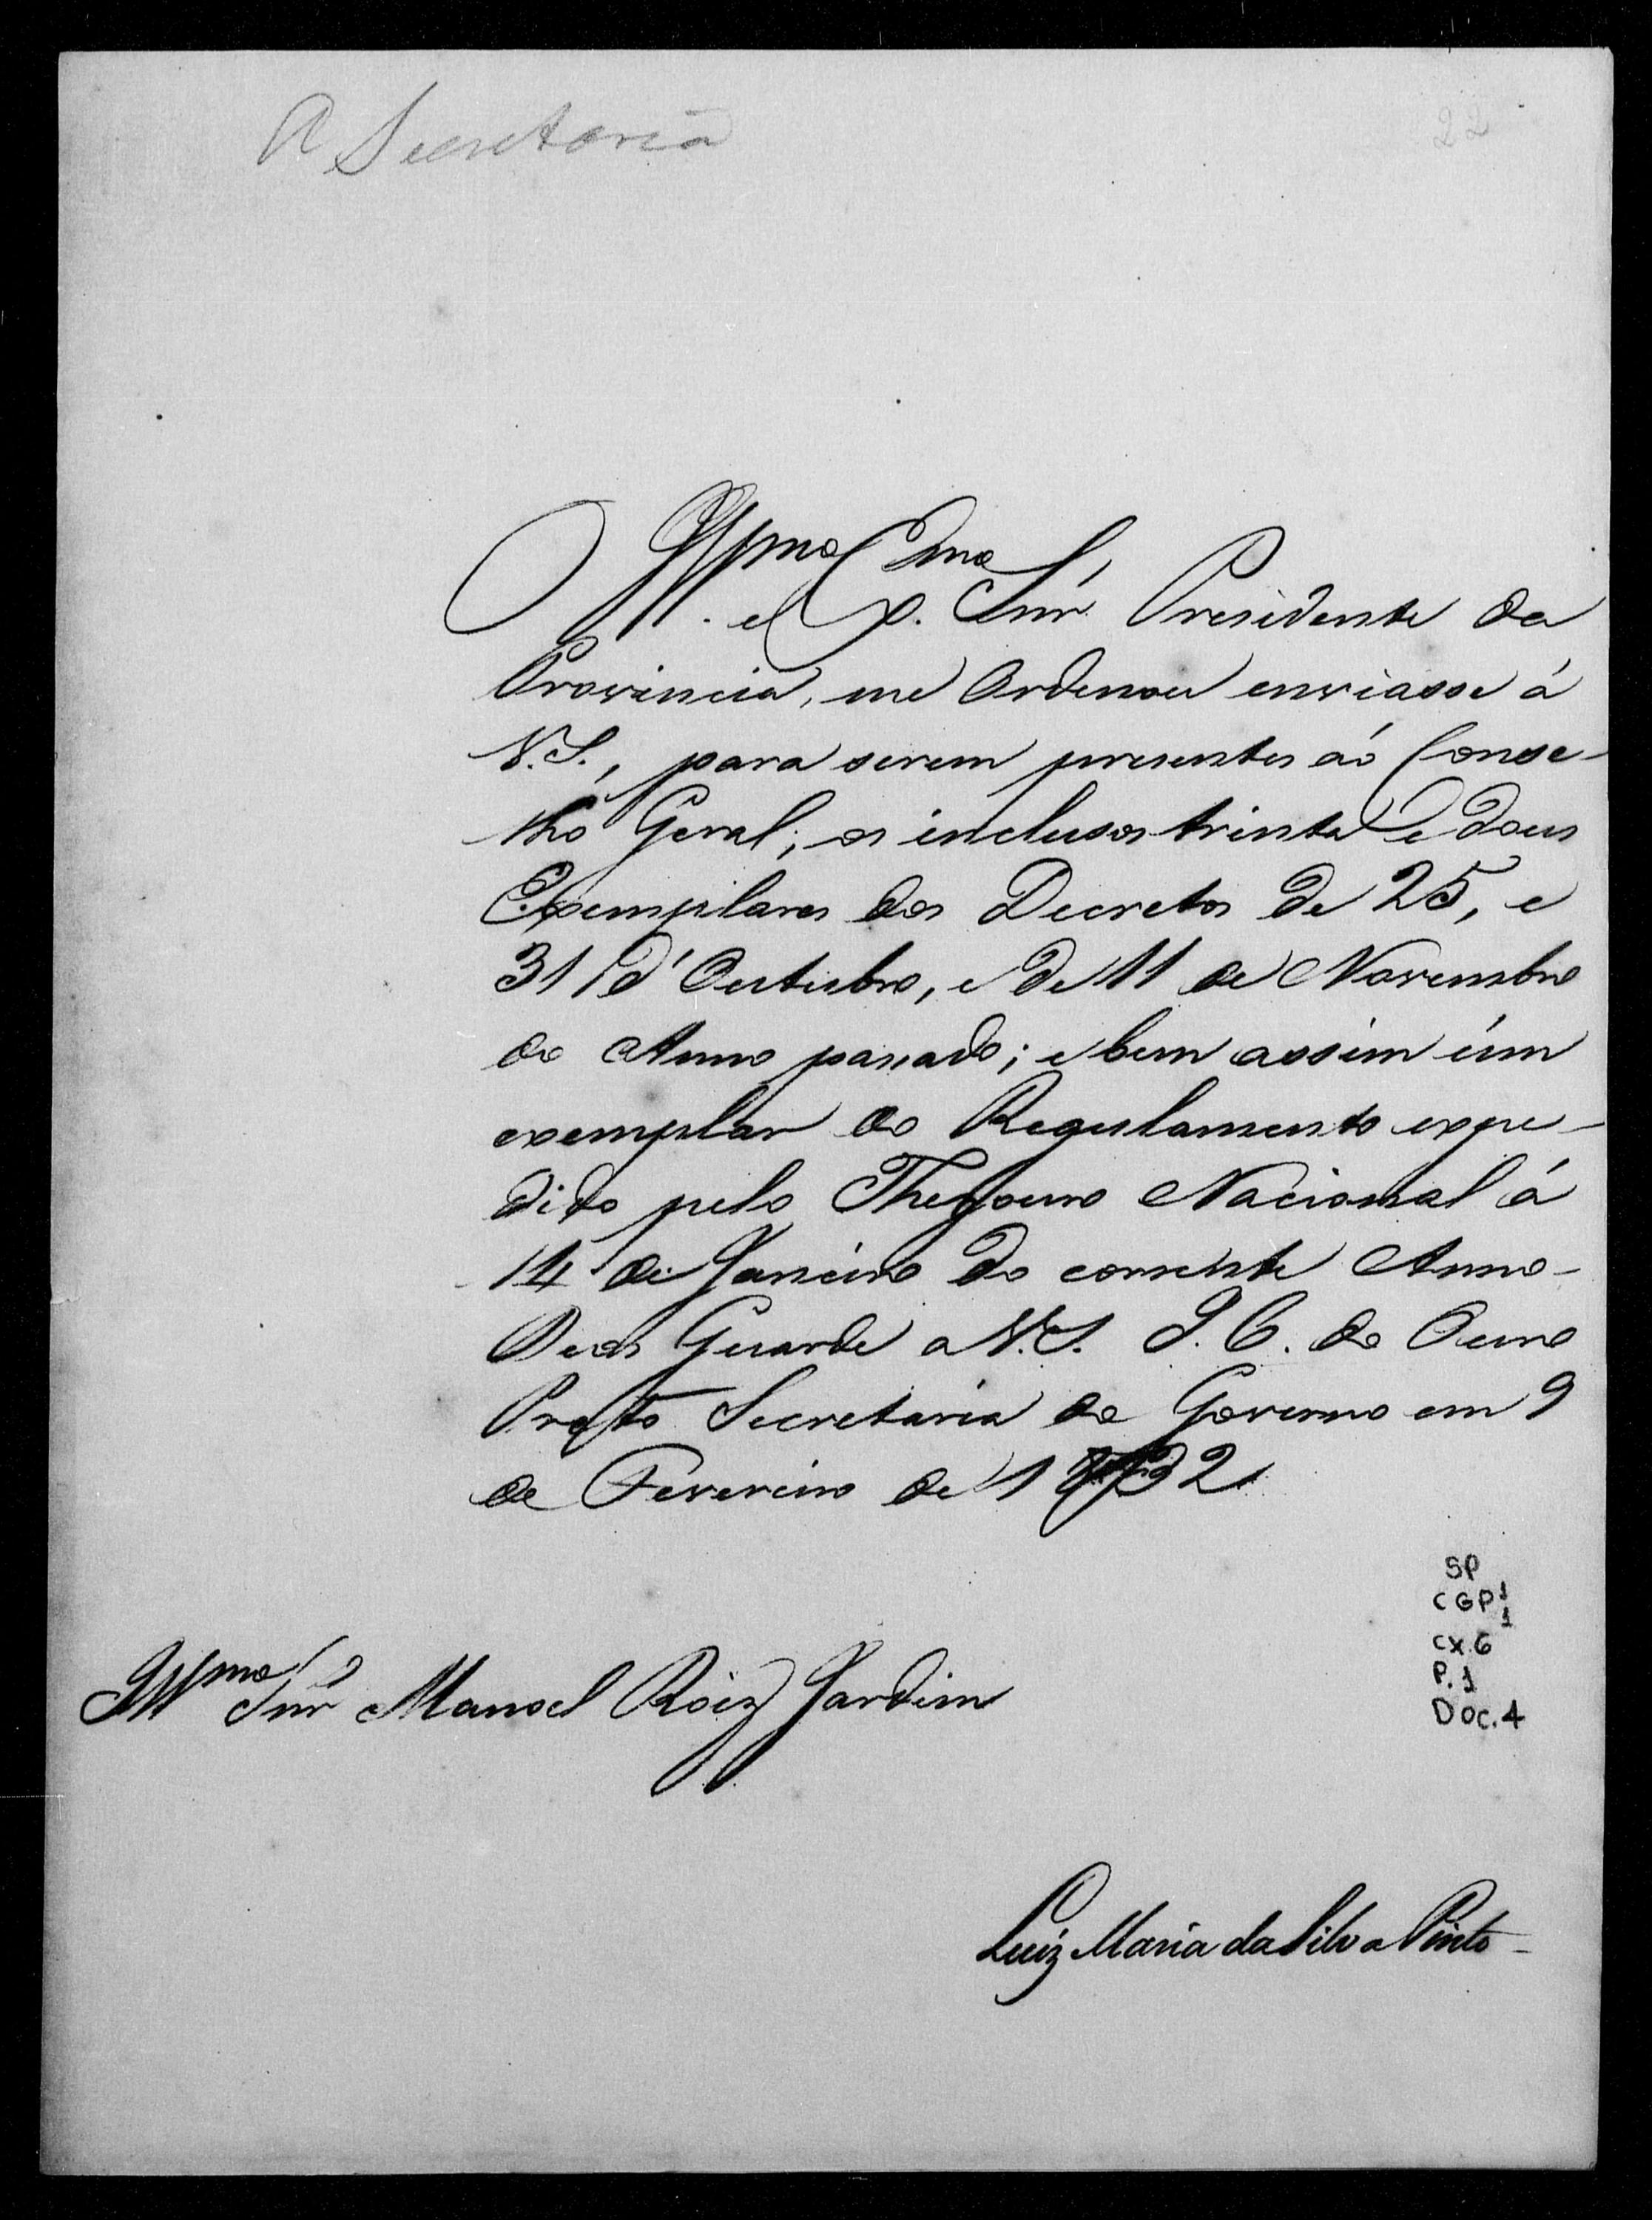 A Secretaria
22
O Illmo. e Exmo. Snr. Presidente da
Provincia, me Ordenou enviasse á
V.S., para serem presentes áo Conse-
lho Geral; os inclusos trinta e dous
Exemplares dos Decretos de 25, e
31 d'Outubro, e de 11 de Novembro
do Anno passado; e bem assim úm
exemplar do Regulamento expe-
dido pelo Thesouro Nacional á
14 de Janeiro do corrente Anno-
Deos Guarde a V.S. I. C. do Ouro
Preto Secretaria do Governo em 9
de Fevereiro de 1832
SP
CGP 1
1
CX.6
P.1
DOC.4
Illmo Snr Manoel Roiz Jardim
Luiz Maria da Silva Pinto-